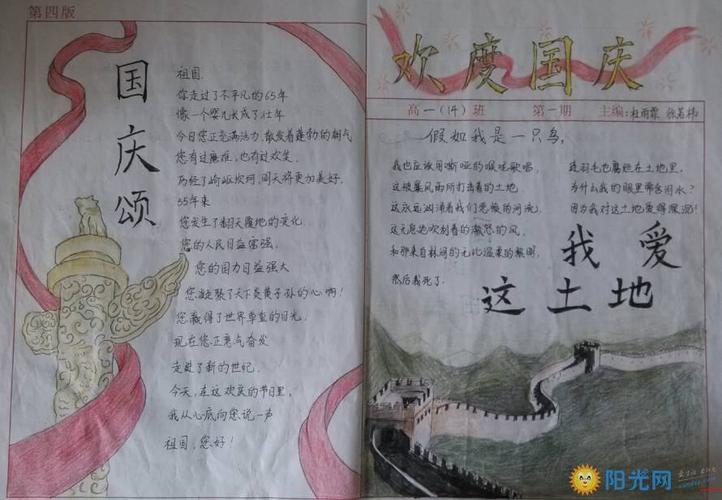 第四版
国庆颂
祖国
你走过了不平凡的65年
像一个婴儿长成了壮年
今日您正充满活力,散发着蓬勃的朝气
您有过磨难,也有过欢笑
历经了崎岖坎坷,明天将更加美好.
65年来
您发生了翻天覆地的变化
您的人民日益富强,
您的国力日益强大
您凝聚了天下炎黄子孙的心啊!
您赢得了世界尊重的目光,
现在您正意气奋发
走进了新的世纪
今天,在这欢庆的节日里,
我从心底向您说一声
祖国,您好!
欢度国庆
高一(14)班 第一期 主编:杜雨霏
假如我是一只鸟,
我也应该用嘶哑的喉咙歌唱
这被暴风雨所打击着的土地
这永远汹涌着我们悲愤的河流,
这无息地吹刮着的激怒的风,
和那来自林间的无比温柔的黎明
然后我死了.
连羽毛也腐烂在土地里.
为什么我的眼里常含泪水?
因为我对这土地爱得深沉!
我爱
这土地
阳光网